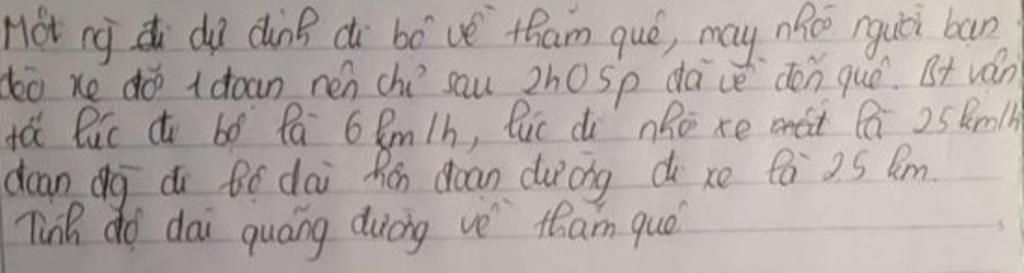 Một ng đi dự định đi bộ về thăm quê, may nhờ người bạn
đèo xe đỡ 1 đoạn nên chỉ sau 2h05p đã về đến quê. Bt vận
tốc lúc đi bộ là 6km/h, lúc đi nhờ xe là 25km/h
đoạn đg đi bộ dài hơn đoạn đường đi xe là 25 km.
Tính độ dài quãng đường về thăm quê